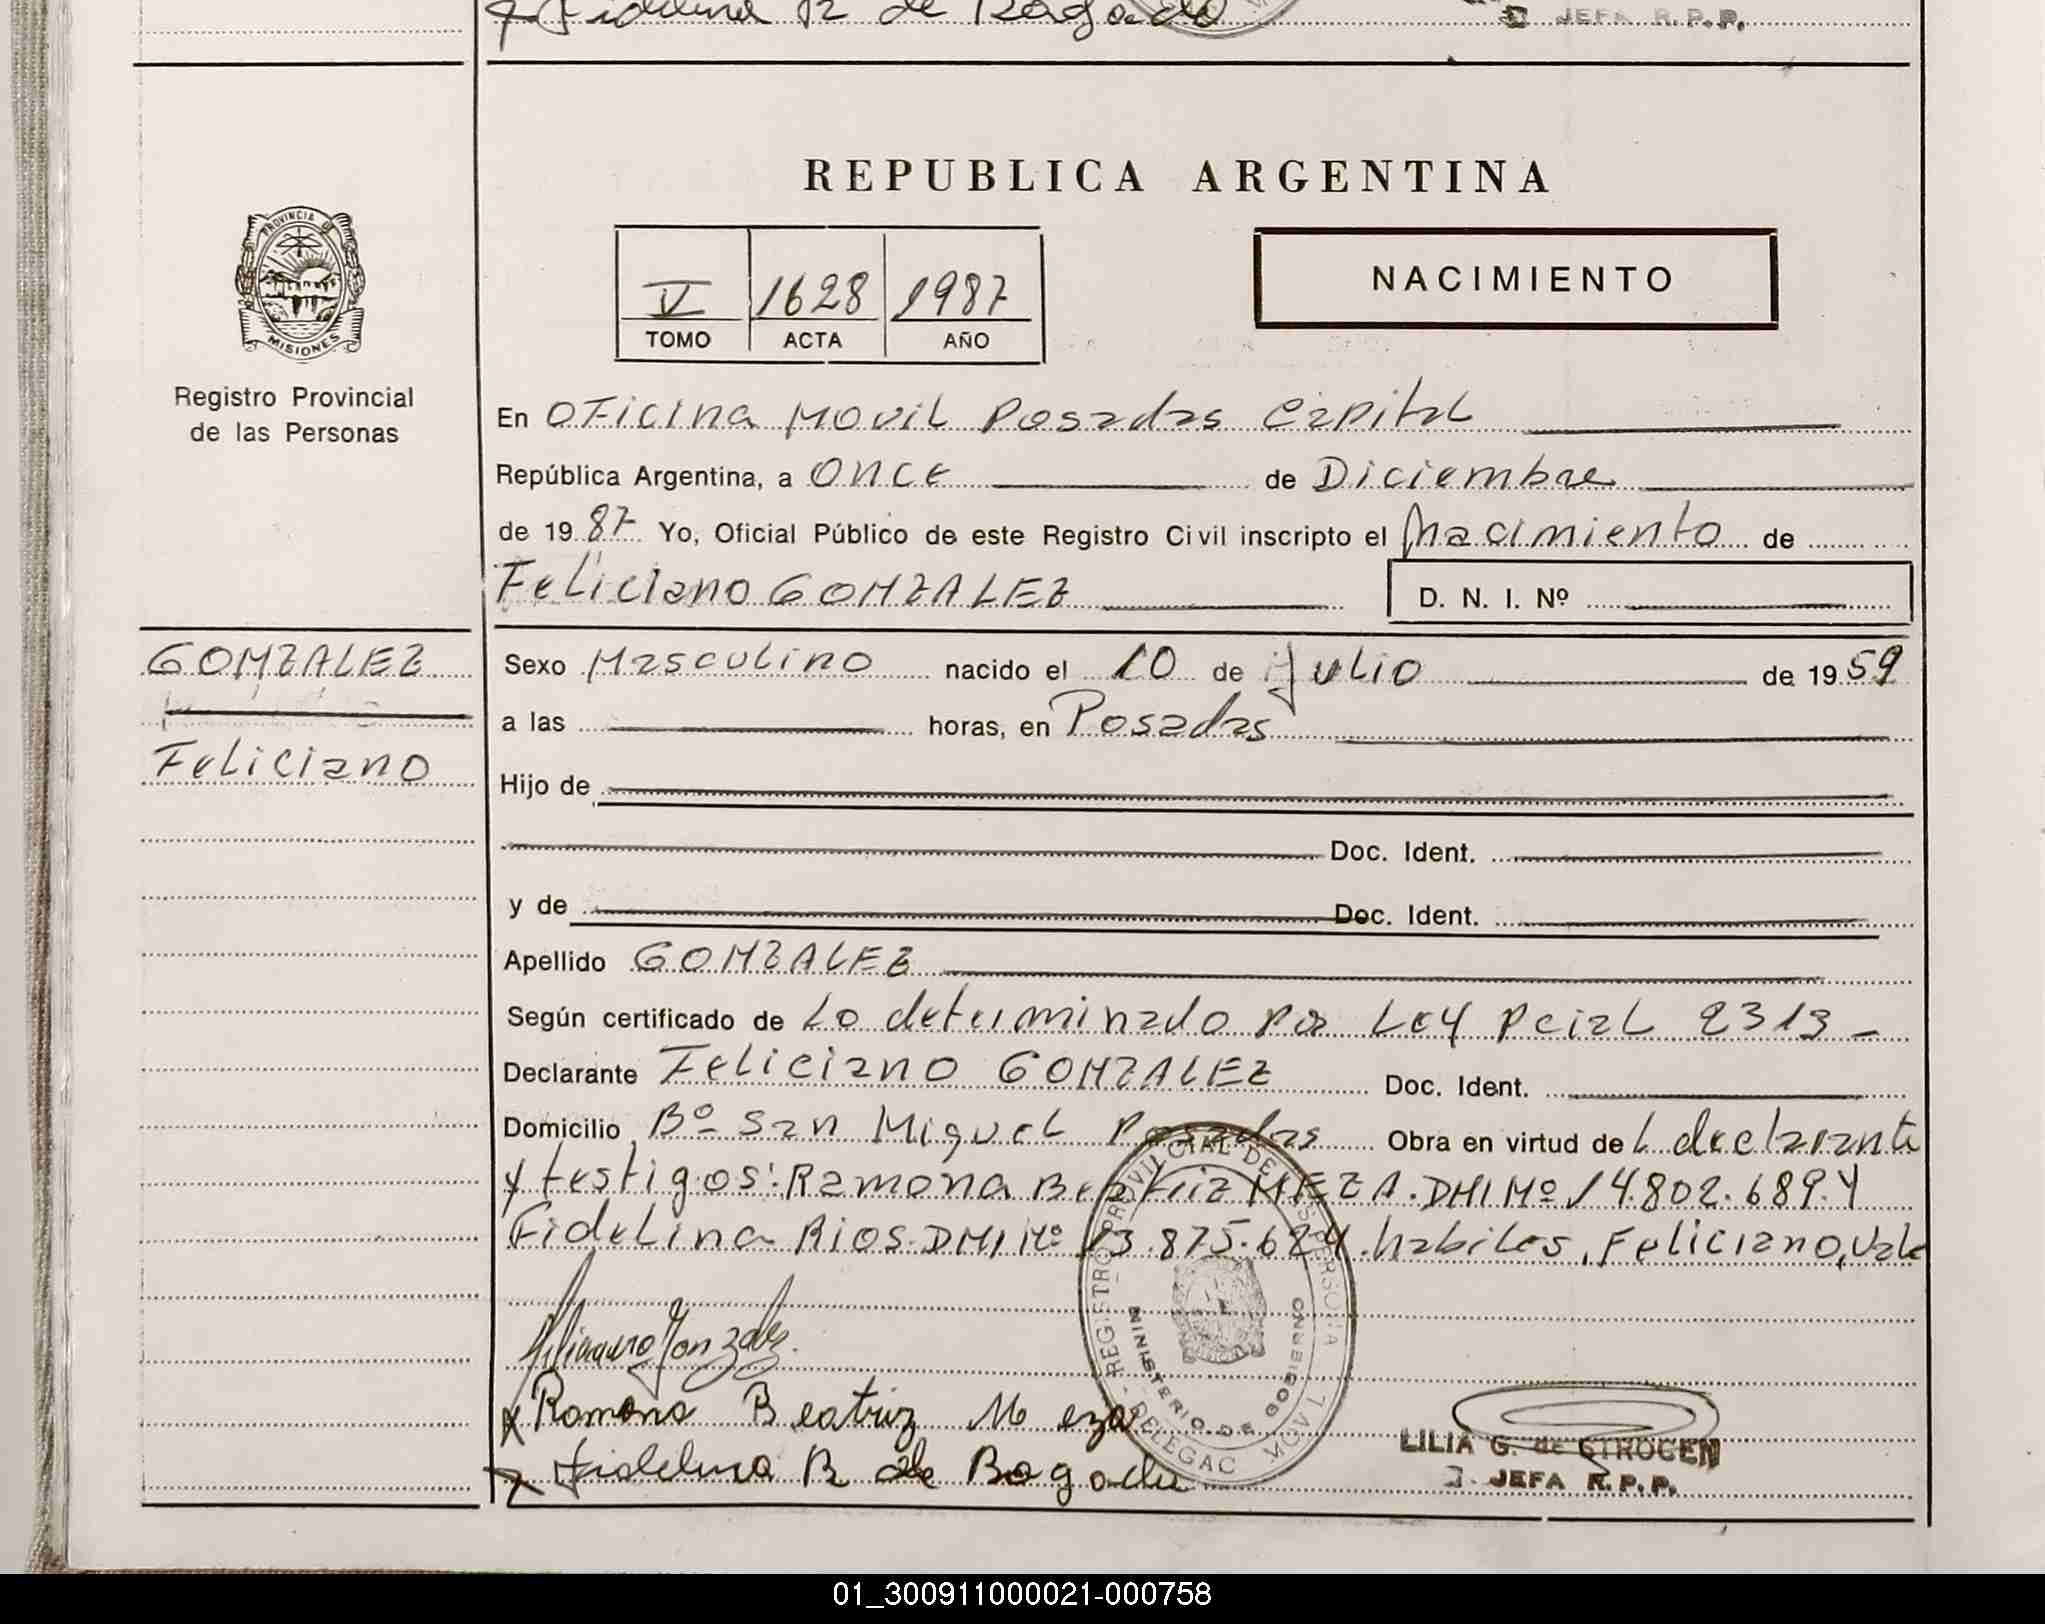 Fidelina R de Bogado
JEFA R.P.P.
REPUBLICA ARGENTINA
PROVINCIA DE
MISIONES
Registro Provincial
de las Personas
V 1628 1987
TOMO ACTA AÑO
NACIMIENTO
En OFicina Movil Posadas Capital
República Argentina, a Once de Diciembre
de 1987 Yo, Oficial Público de este Registro Civil inscripto el Nacimiento de
Feliciano GONZALEZ D. N. I. Nº
GONZALEZ
Feliciano
Sexo Masculino nacido el 10 de Julio de 1959
a las horas, en Posadas
Hijo de
Doc. Ident.
y de Doc. Ident.
Apellido GONZALEZ
Según certificado de Lo determinado por Ley Pcial 2313-
Declarante Feliciano GONZALEZ Doc. Ident.
Domicilio Bº San Miguel Posadas Obra en virtud de L declarante
y testigos: Ramona Beatriz MEZA. DNI Nº 14.802.689. Y
Fidelina RIOS. DNI Nº 13.875.624. habiles, Feliciano, Vale
Feliciano Gonzalez.
x Ramona Beatriz Meza
x Fidelina R de Bogado
REGISTRO PROVINCIAL DE LAS PERSONAS
MINISTERIO DE GOBIERNO
DELEGAC MOVIL
LILIA G. de GIROCEN
JEFA R.P.P.
01_300911000021-000758